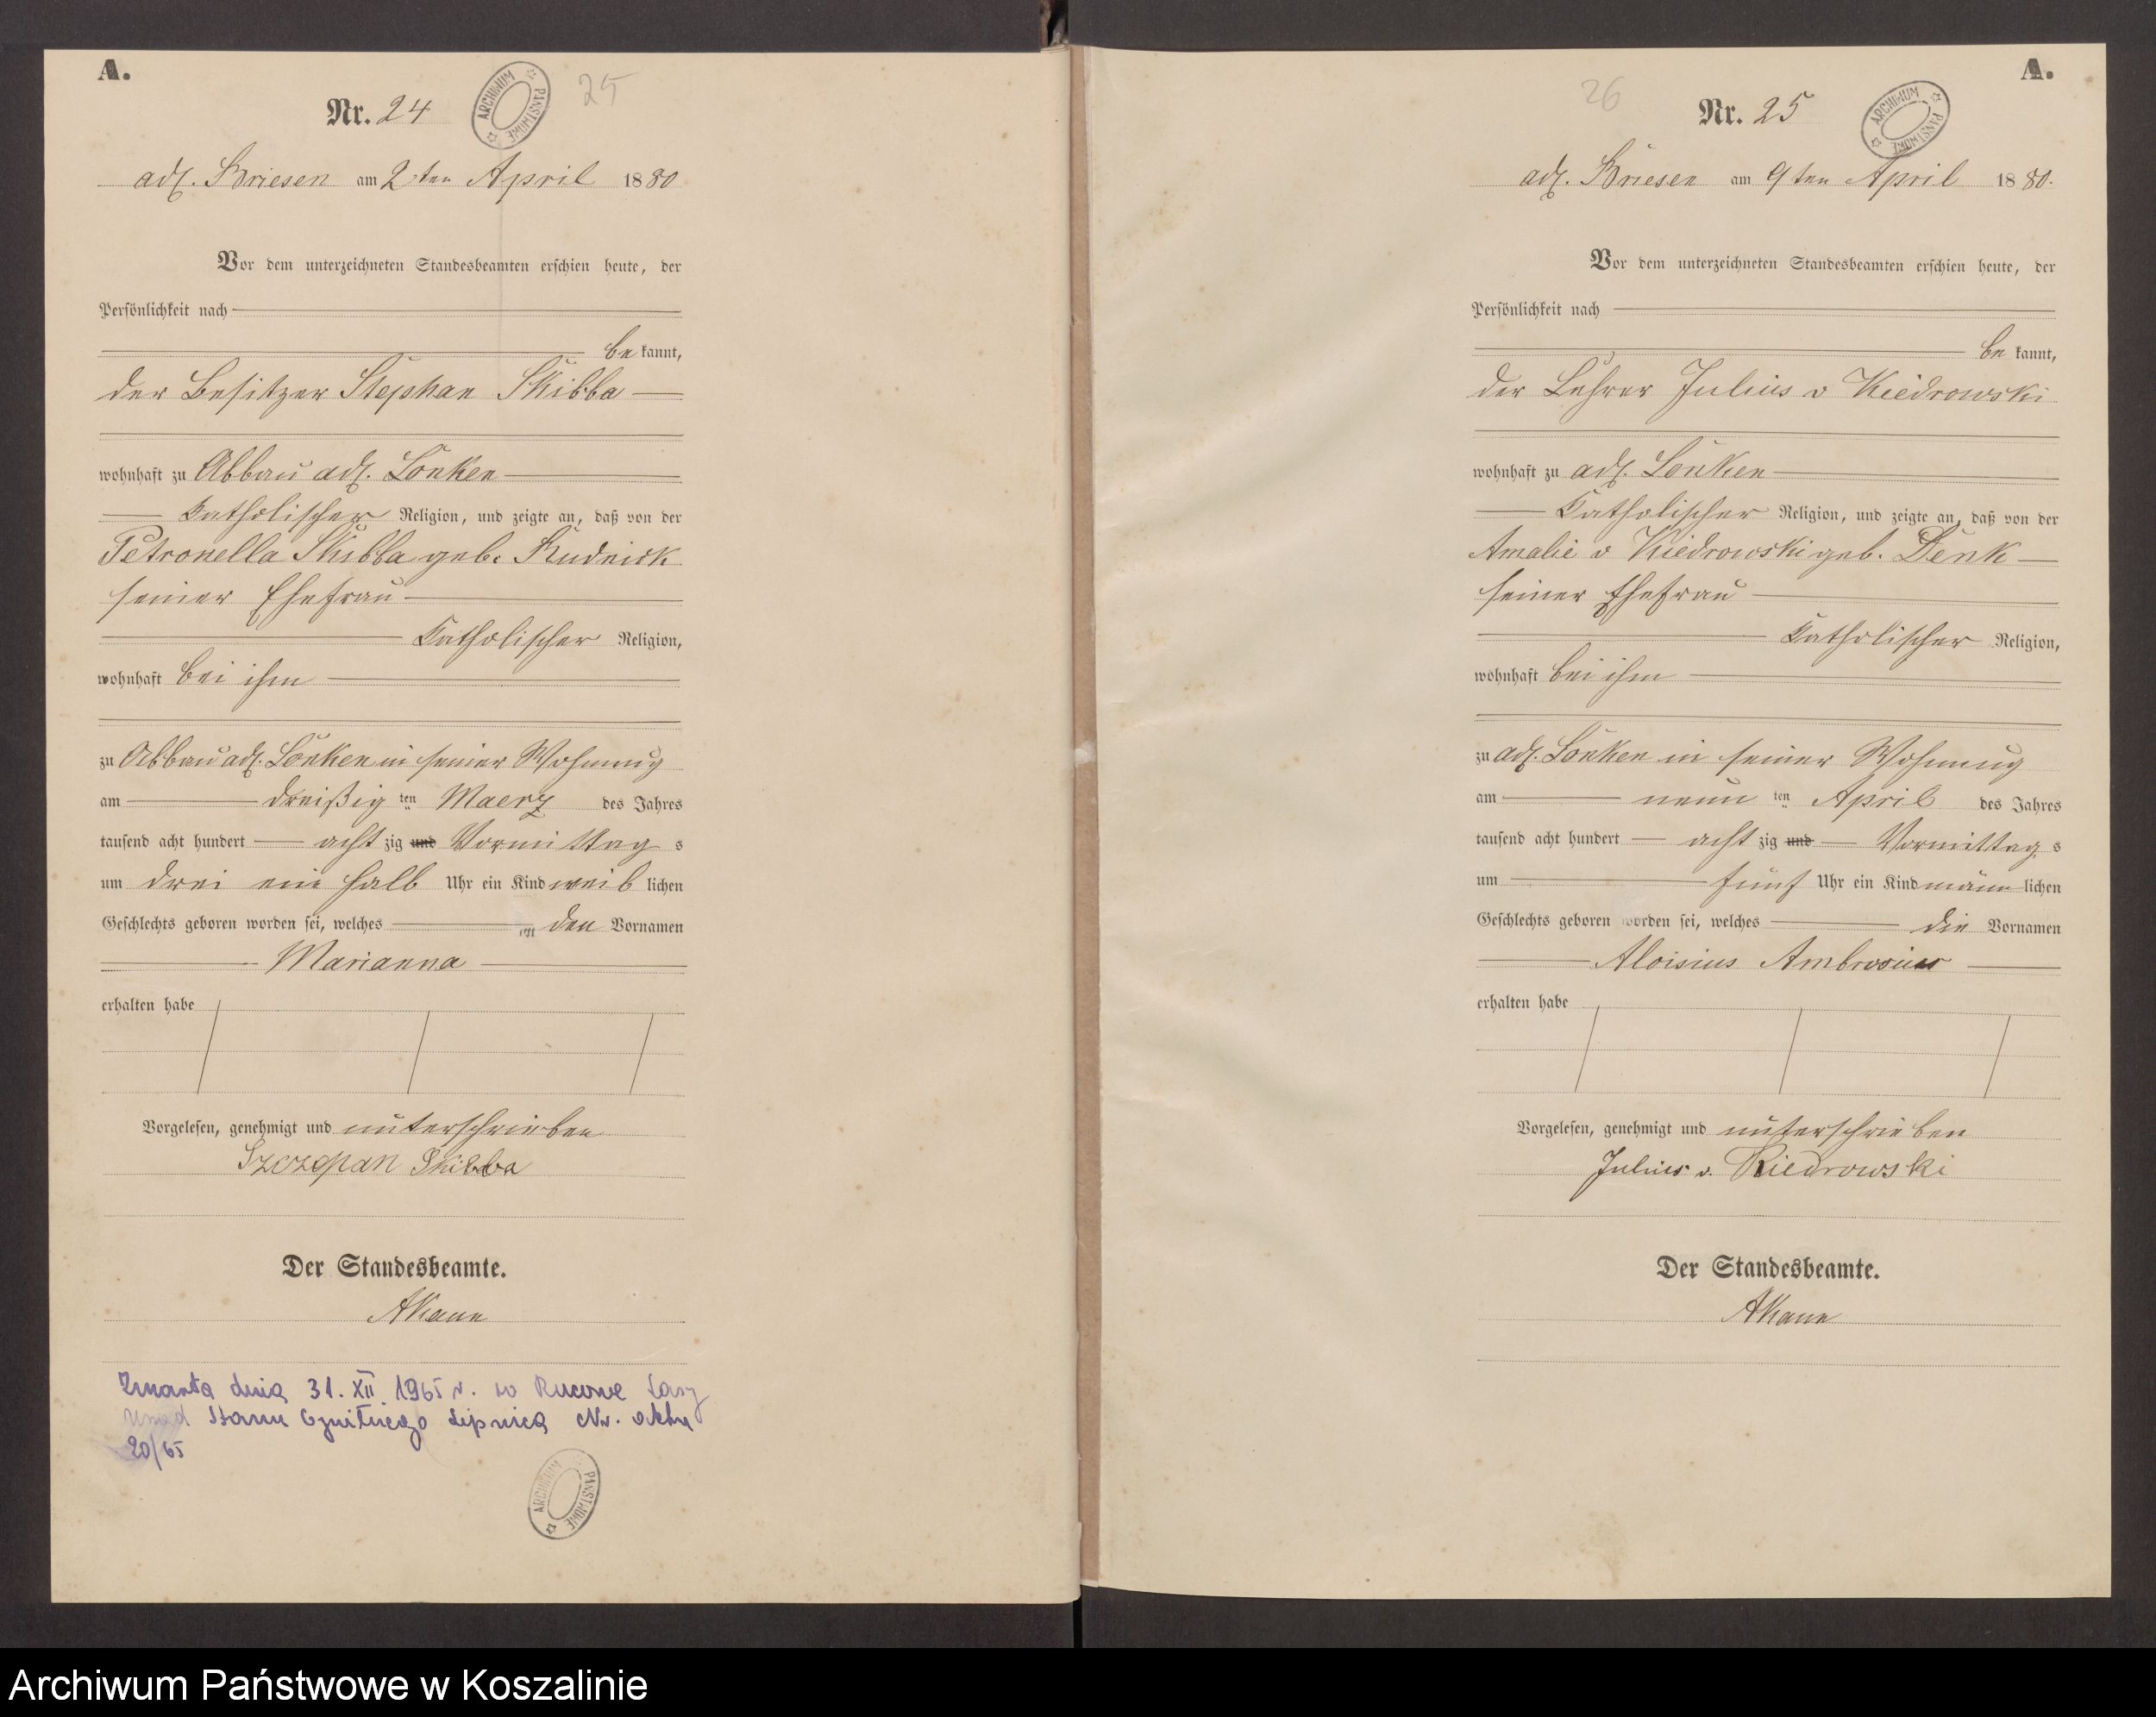 A.
Nr. 24
25
ARCHIWUM PAŃSTWOWE
adl. Briesen am 2ten April 1880
Vor dem unterzeichneten Standesbeamten erschien heute, der
Persönlichkeit nach
be kannt,
der Besitzer Stephan Skibba
wohnhaft zu Abbau adl. Lonken
Katholischer Religion, und zeigte an, daß von der
Petronella Skibba geb. Rudnick
seiner Ehefrau
Katholischer Religion,
wohnhaft bei ihm
zu Abbau adl. Lonken in seiner Wohnung
am dreißig ten Maerz des Jahres
tausend acht hundert acht zig und Vormittag s
um drei ein halb Uhr ein Kind weib lichen
Geschlechts geboren worden sei, welches den Vornamen
Marianna
erhalten habe
Vorgelesen, genehmigt und unterschrieben
Szczepan Skibba
Der Standesbeamte.
AKaun
Zmarła dnia 31. XII. 1965 r. w Rucowe Lasy
Urząd Stanu Cywilnego Lipnica Nr. aktu
20/65
ARCHIWUM PAŃSTWOWE
A.
26
Nr. 25
ARCHIWUM PAŃSTWOWE
adl. Briesen am 9ten April 1880.
Vor dem unterzeichneten Standesbeamten erschien heute, der
Persönlichkeit nach
be kannt,
der Lehrer Julius v Kiedrowski
wohnhaft zu adl. Lonken
Katholischer Religion, und zeigte an, daß von der
Amalie v Kiedrowski geb. Denk
seiner Ehefrau
Katholischer Religion,
wohnhaft bei ihm
zu adl. Lonken in seiner Wohnung
am neun ten April des Jahres
tausend acht hundert acht zig und Vormittag s
um fünf Uhr ein Kind männ lichen
Geschlechts geboren worden sei, welches die Vornamen
Aloisius Ambrosius
erhalten habe
Vorgelesen, genehmigt und unterschrieben
Julius v. Kiedrowski
Der Standesbeamte.
AKaun
Archiwum Państwowe w Koszalinie